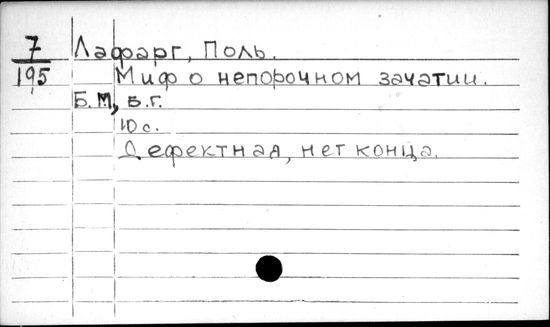 7
195
Лафарг, Поль.
Миф о непорочном зачатии.
Б.М, б.г.
10 с.
Дефектная, нет конца.